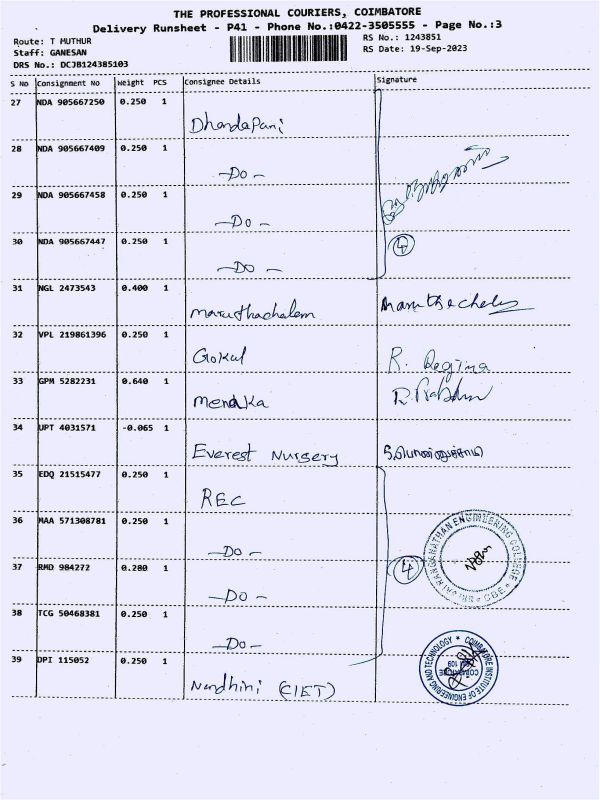 THE PROFESSIONAL COURIERS, COIMBATORE
Delivery Runsheet - P41 - Phone No.:0422-3505555 - Page No.:3
Route: T MUTHUR
RS No.: 1243851
Staff: GANESAN
RS Date: 19-Sep-2023
DRS No.: DCJB124385103
S No Consignment No Weight PCS Consignee Details Signature
27 NDA 905667250 0.250 1
Dhandapani
28 NDA 905667409 0.250 1
-Do-
29 NDA 905667458 0.250 1
-Do-
30 NDA 905667447 0.250 1
-Do-
4
31 NGL 2473543 0.400 1
Maruthachalem
32 VPL 219861396 0.250 1
Gokul R. Regina
33 GPM 5282231 0.640 1
Menaka R. Prabhu
34 UPT 4031571 -0.065 1
Everest Nursery
35 EDQ 21515477 0.250 1
REC
36 MAA 571308781 0.250 1
-Do-
37 RMD 984272 0.280 1
-Do- 4
38 TCG 50468381 0.250 1
-Do-
SRI RANGANATHAN ENGINEERING COLLEGE
CBE
39 DPI 115052 0.250 1
Nandhini (CIET)
COIMBATORE INSTITUTE OF ENGINEERING AND TECHNOLOGY